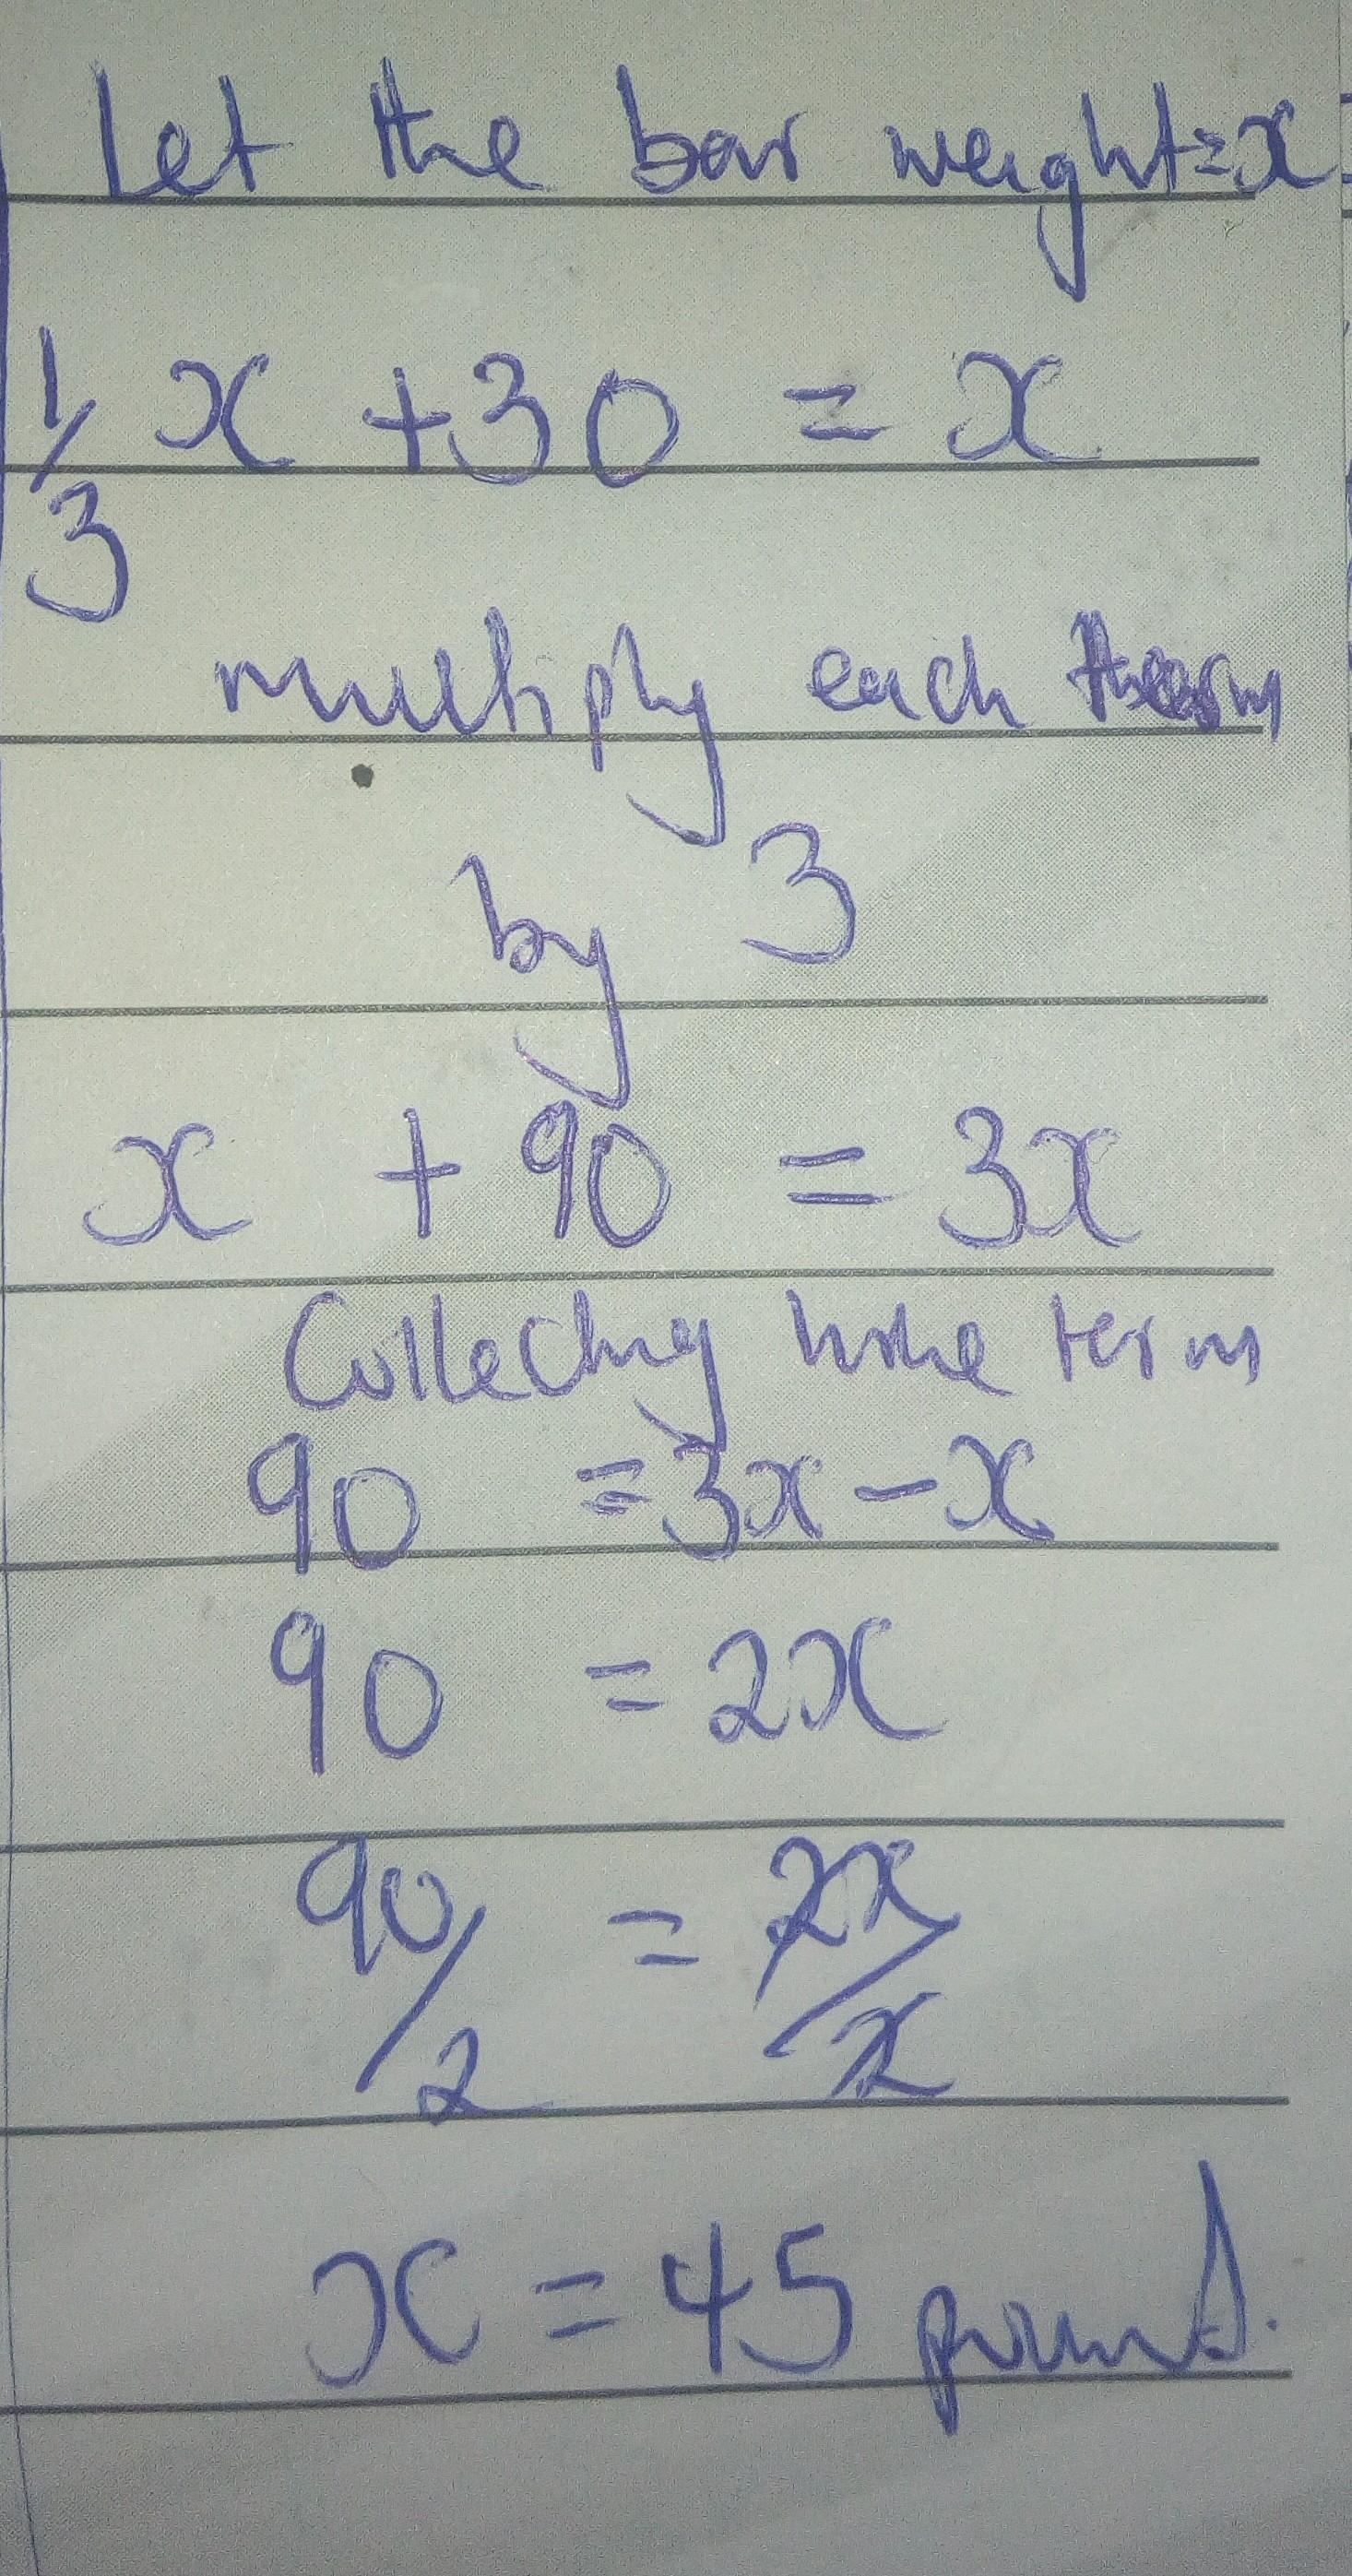 Let the bar weight = x
1/3 x + 30 = x
multiply each term
by 3
x + 90 = 3x
Collecting like term
90 = 3x - x
90 = 2x
90/2 = 2x/2
x = 45 pound.